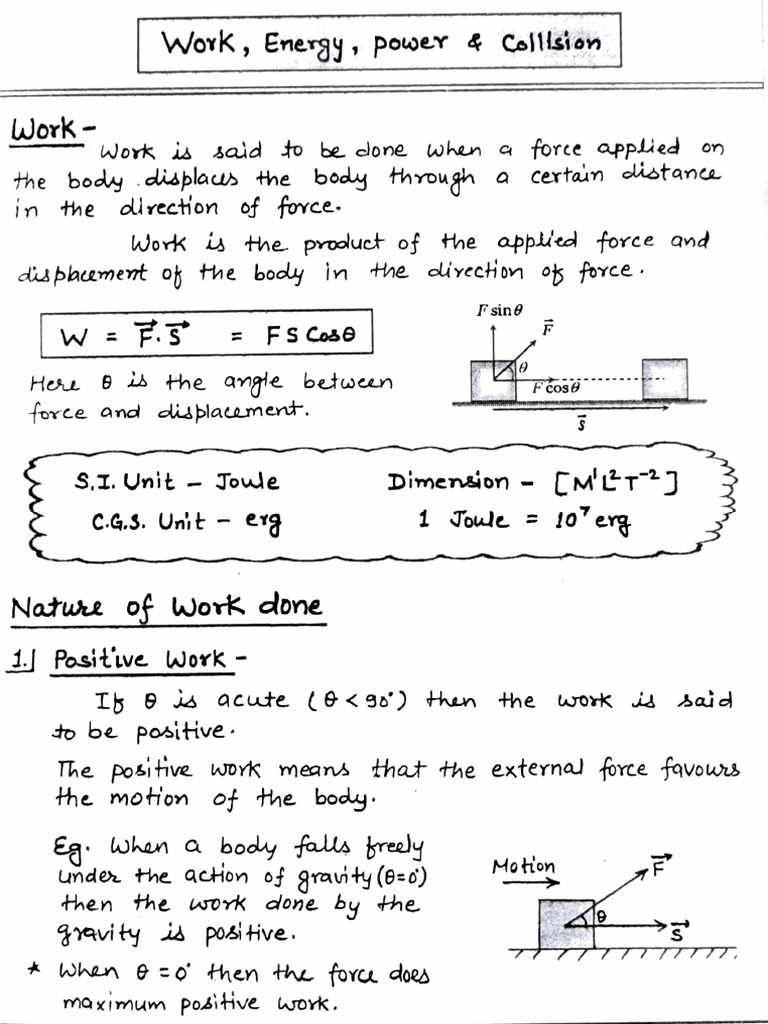 Work, Energy, Power & Collision
Work -
Work is said to be done when a force applied on
the body displaces the body through a certain distance
in the direction of force.
Work is the product of the applied force and
displacement of the body in the direction of force.
W = F⃗.S⃗ = F S Cosθ
Here θ is the angle between
force and displacement.
F sin θ
F⃗
θ
F cos θ
s⃗
S.I. Unit - Joule
Dimension - [M¹L²T⁻²]
C.G.S. Unit - erg
1 Joule = 10⁷ erg
Nature of Work done
1.] Positive Work -
If θ is acute (θ < 90°) then the work is said
to be positive.
The positive work means that the external force favours
the motion of the body.
Eg. When a body falls freely
under the action of gravity (θ=0°)
then the work done by the
gravity is positive.
* When θ = 0° then the force does
maximum positive work.
Motion
F⃗
θ
S⃗